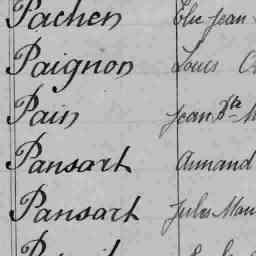 Pachen Elie Jean
Paignon Louis
Pain Jean Bte
Pansart Armand
Pansart Jules